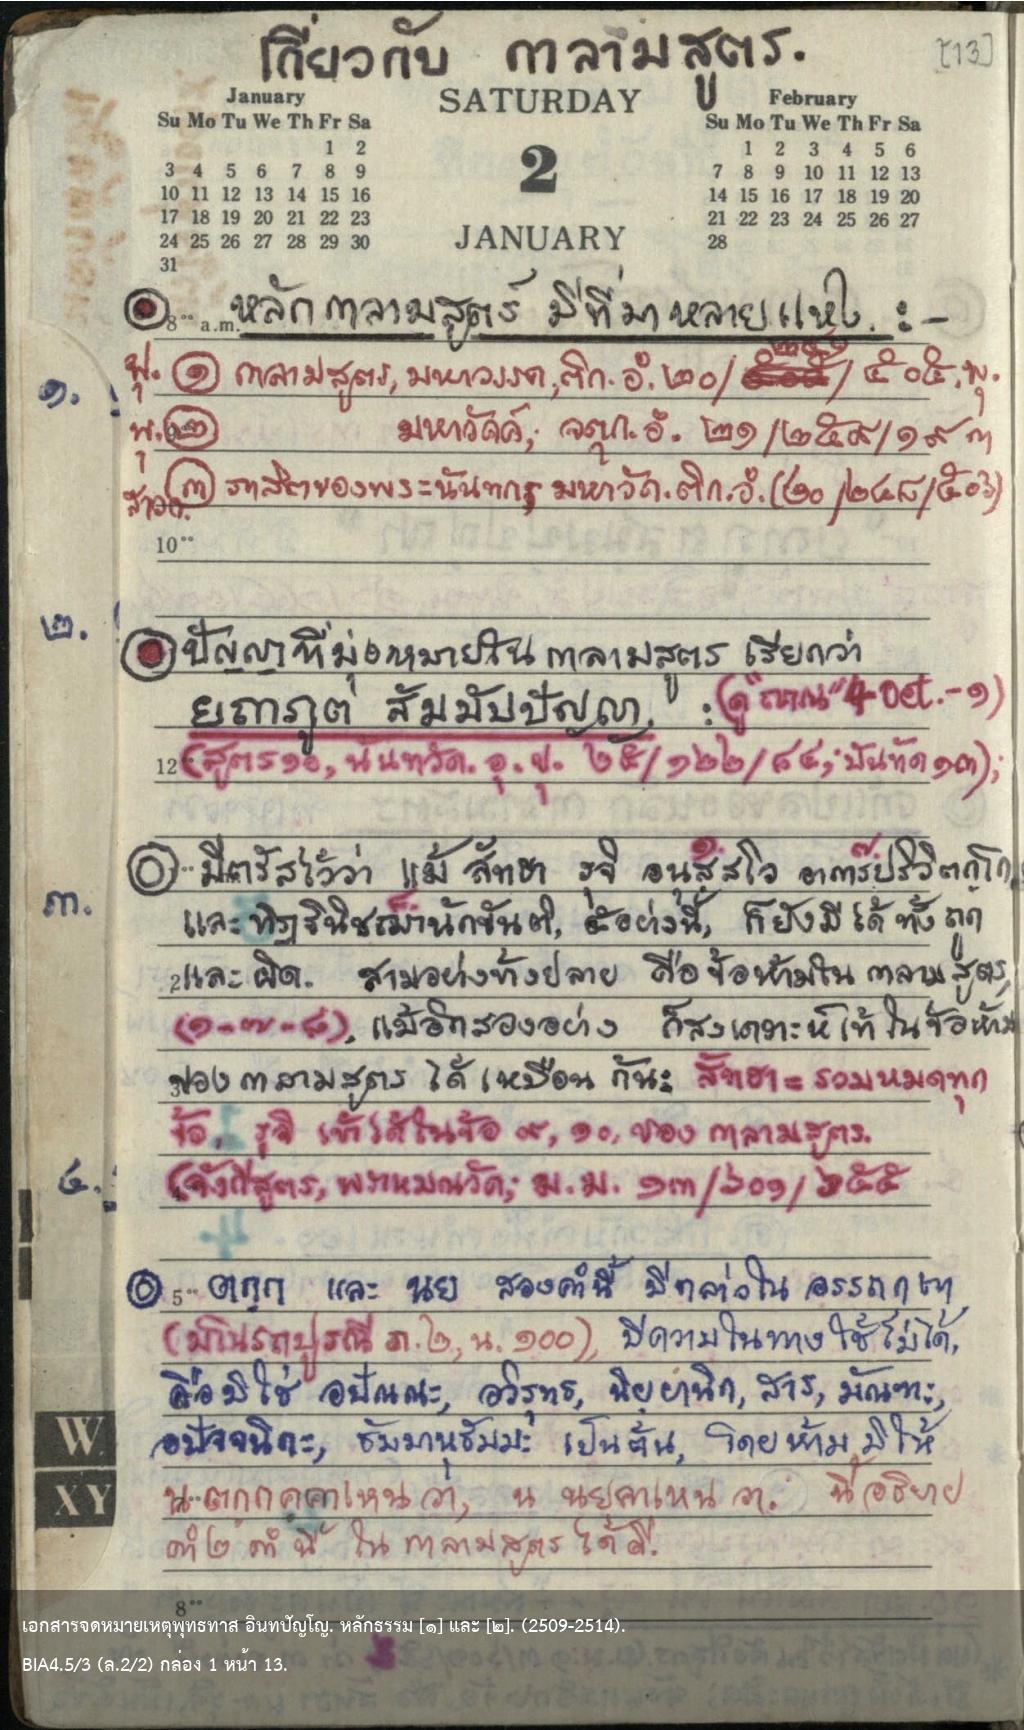 เกี่ยวกับ กาลามสูตร.
[13]
January
Su Mo Tu We Th Fr Sa
1 2
3 4 5 6 7 8 9
10 11 12 13 14 15 16
17 18 19 20 21 22 23
24 25 26 27 28 29 30
31
SATURDAY
2
JANUARY
February
Su Mo Tu We Th Fr Sa
1 2 3 4 5 6
7 8 9 10 11 12 13
14 15 16 17 18 19 20
21 22 23 24 25 26 27
28
8 a.m. หลักกาลามสูตร์ มีที่มาหลายแห่ง. :-
๑. พุ. ๑ กาลามสูตร, มหาวรรค, ติก. อํ. ๒๐/ /๕๐๕. พุ.
พุ. ๒ มหาวัคค์; จตุก. อํ. ๒๑/๒๕๙/๑๙๓
สาวก. ๓ ภาสิตของพระนันทกะ มหาวัค. ติก. อํ. (๒๐/๒๔๘/๕๐๖)
10
๒. ปัญญาที่มุ่งหมายใน กาลามสูตร เรียกว่า
ยถาภูตํ สัมมัปปัญญา. : (ดู "ญาณ" 4 Oct. - ๑)
12 (สูตร๑๐, นันทวัค. อุ. ขุ. ๒๕/๑๒๒/๘๔; บันทัด ๑๓);
มีตรัสไว้ว่า แม้ สัทธา รุจิ อนุสฺสโว อาการปริวิตกฺโก
๓. และ ทิฏฐินิชฌานักขันติ, ๕อย่างนี้, ก็ยังมีได้ทั้งถูก
2 และ ผิด. สามอย่างข้างปลาย คือข้อห้ามใน กาลามสูตร,
(๑-๗-๘), แม้อีกสองอย่าง ก็สงเคราะห์เข้าในข้อห้าม
3 ของ กาลามสูตร ได้เหมือนกันะ สัทธา = รวมหมดทุก
ข้อ, รุจิ เข้าได้ในข้อ ๙, ๑๐, ของ กาลามสูตร.
๔. 4 (จังกีสูตร, พราหมณวัค; ม. ม. ๑๓/๖๐๑/๖๕๕
5 ตกฺก และ นย สองคำนี้ มีกล่าวใน อรรถกถา
(มโนรถปูรณี ภ. ๒, น. ๑๐๐), มีความในทางใช้ไม่ได้,
คือมิใช่ อปัณณะ, อวิรุทธ, นิยฺยานิก, สาร, มัณฑะ,
อปัจจนิกะ, ธัมมานุธัมมะ เป็นต้น, โดยห้ามมิให้
น ตกฺกคฺคาเหน วา, น นยคฺคาเหน วา. นี้อธิบาย
คำ๒ คำนี้ ใน กาลามสูตร ได้ดี.
8
W
XY
เอกสารจดหมายเหตุพุทธทาส อินทปัญโญ. หลักธรรม [๑] และ [๒]. (2509-2514).
BIA4.5/3 (ล.2/2) กล่อง 1 หน้า 13.